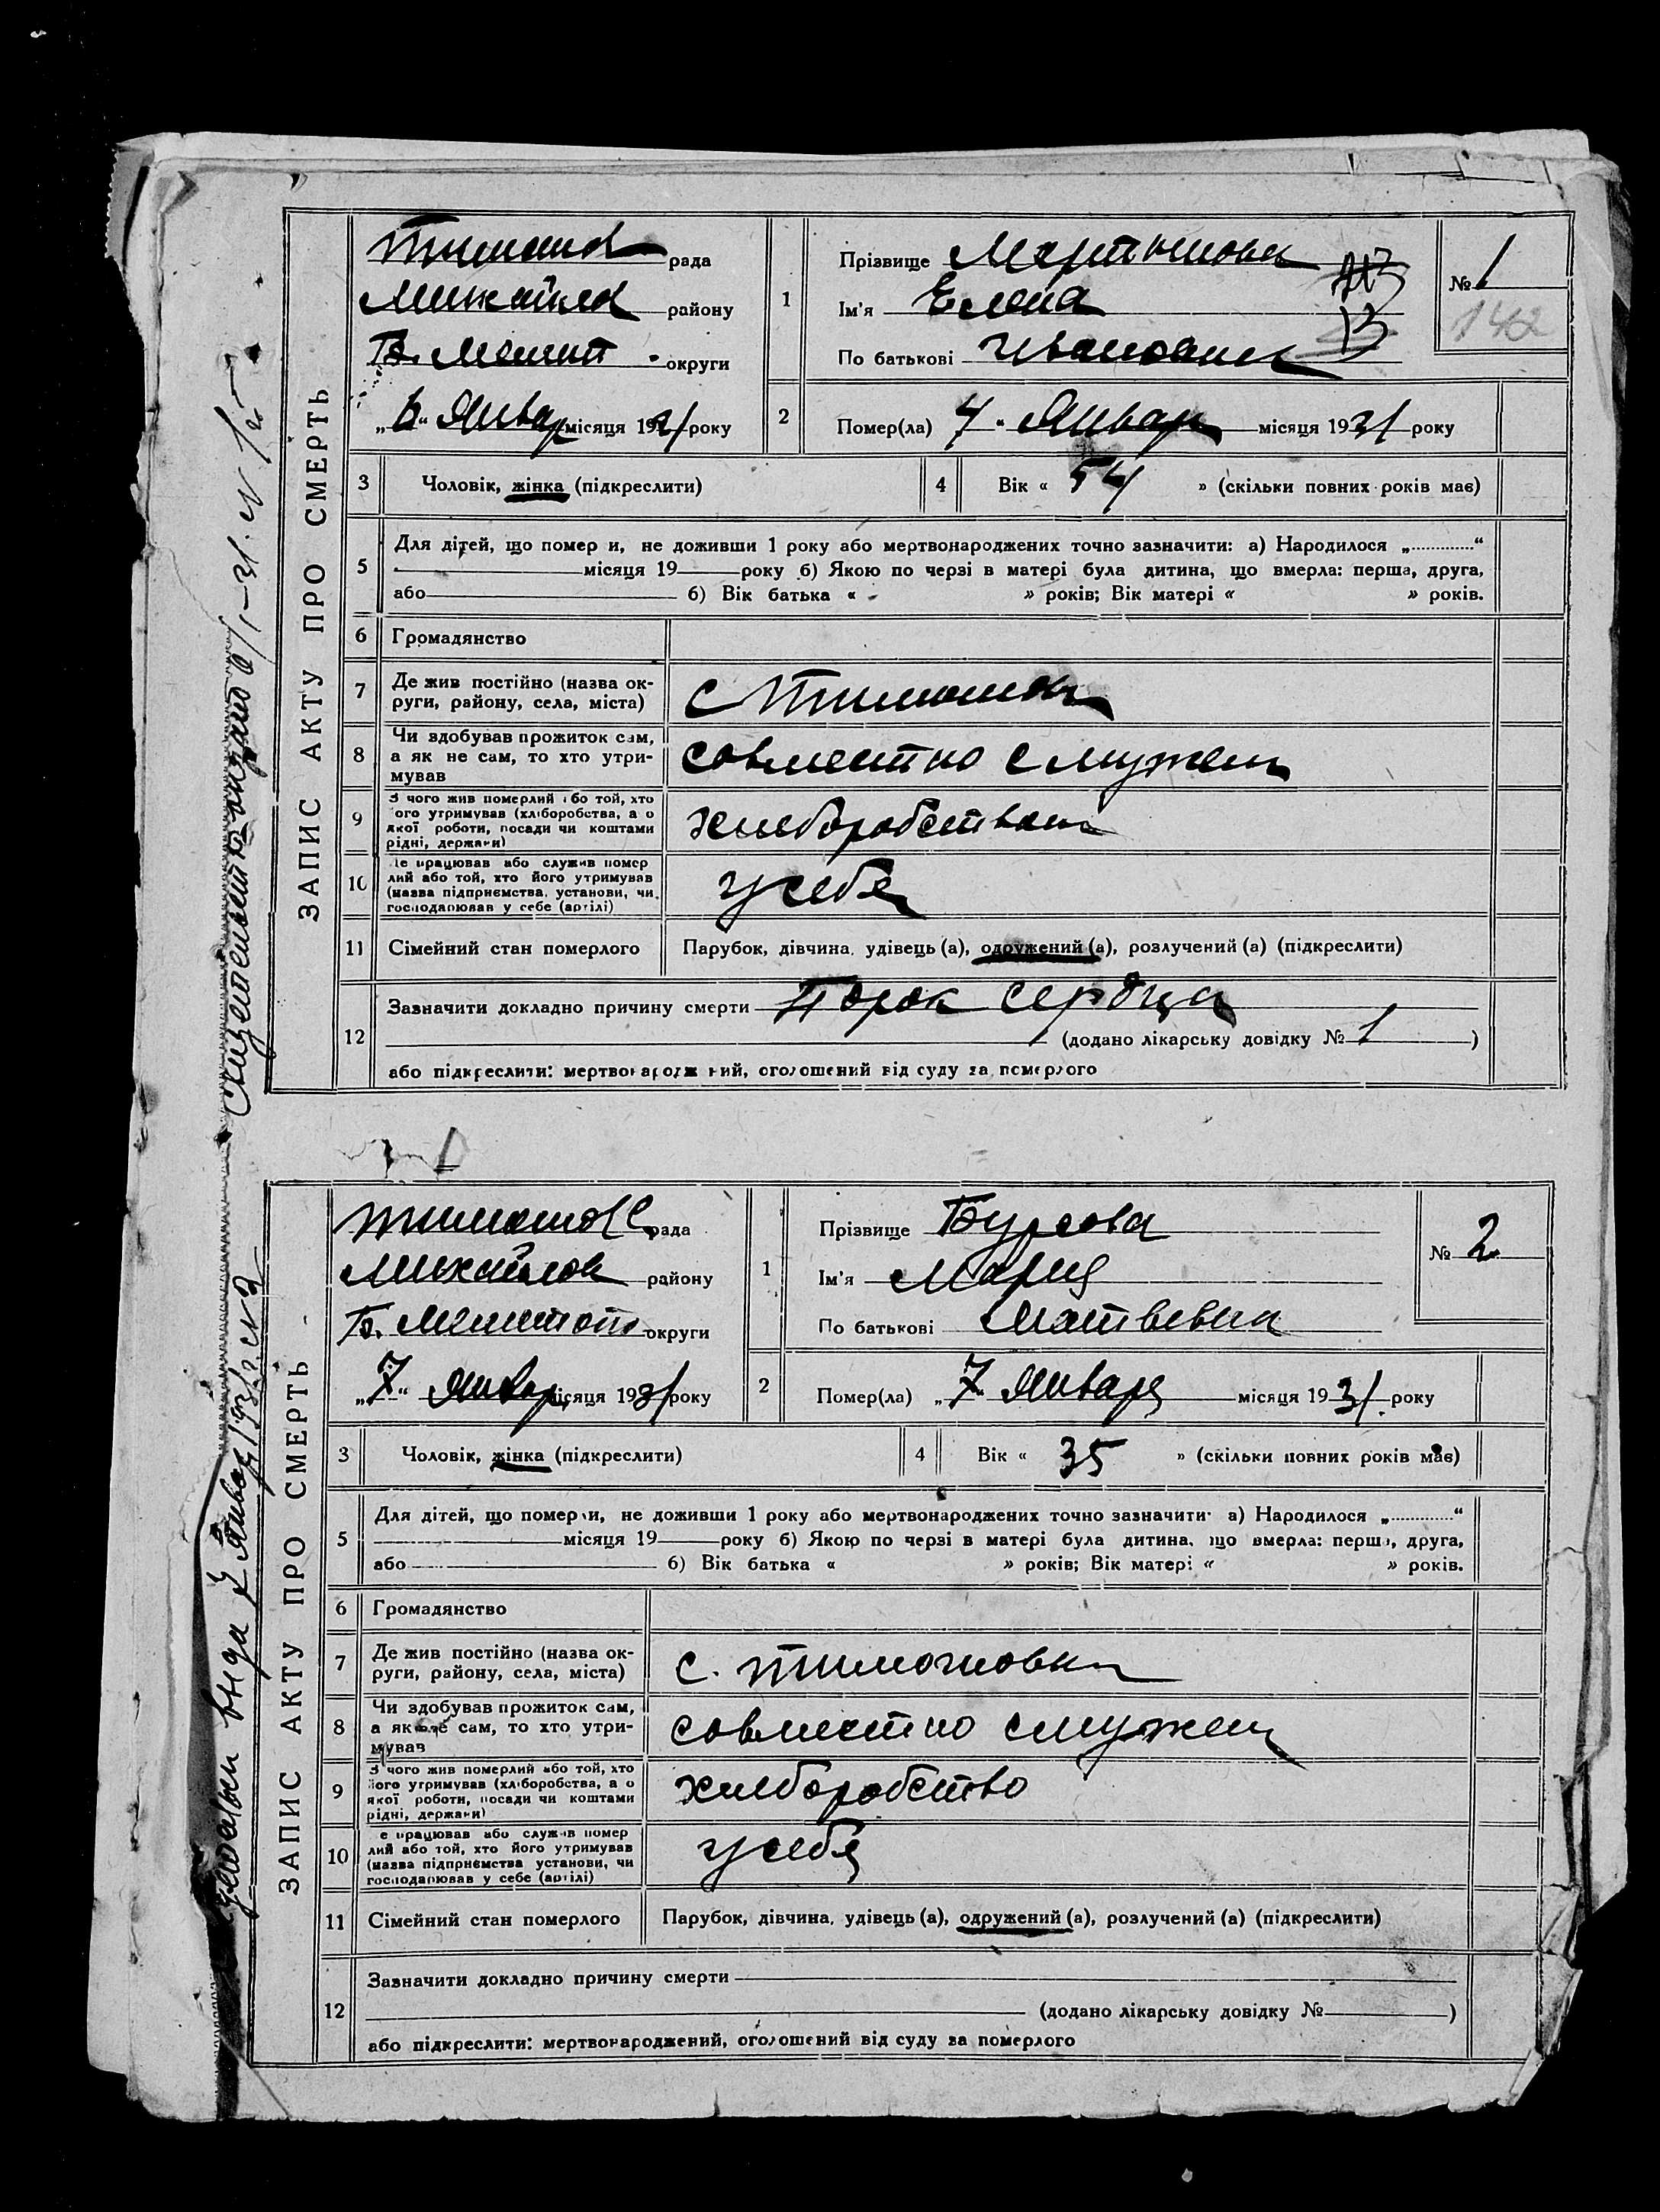 ЗАПИС АКТУ ПРО СМЕРТЬ
рада
Михайлов району
Б. Мелит. округи
„6“ Январ місяця 1931 року
1
Прізвище Мартынова
Ім'я Елена
По батькові Ивановна
13
№ 1
142
2
Помер(ла) 4 „ Январ місяця 1931 року
3 Чоловік, жінка (підкреслити)
4 Вік « 54 » (скільки повних років має)
5 Для дітей, що помер и, не доживши 1 року або мертвонароджених точно зазначити: а) Народилося „............“
місяця 19 року б) Якою по черзі в матері була дитина, що вмерла: перша, друга,
або б) Вік батька « » років; Вік матері « » років.
6 Громадянство
7 Де жив постійно (назва ок-
руги, району, села, міста)
с Тимошовка
8 Чи здобував прожиток сам,
а як не сам, то хто утри-
мував
совместно с мужем
9 З чого жив померлий або той, хто
його утримував (хліборобства, а о
якої роботи, посади чи коштами
рідні, держави)
хлеборобством
10 Де працював або служив помер
лий або той, хто його утримував
(назва підприємства, установи, чи
господарював у себе (артілі)
у себя
11 Сімейний стан померлого
Парубок, дівчина, удівець (а), одружений (а), розлучений (а) (підкреслити)
12 Зазначити докладно причину смерти Порок сердца
(додано лікарську довідку № 1 )
або підкреслити: мертвонароджений, оголошений від суду за померлого
6/1-31. N 1
ЗАПИС АКТУ ПРО СМЕРТЬ
Тимошов С рада
Михайлов району
Б. Мелитоп округи
„7“ Январ місяця 1931 року
1
Прізвище Бурсова
Ім'я Мария
По батькові Матвевна
№ 2
2
Помер(ла) „7“ Января місяця 1931. року
3 Чоловік, жінка (підкреслити)
4 Вік « 35 » (скільки повних років має)
5 Для дітей, що померли, не доживши 1 року або мертвонароджених точно зазначити: а) Народилося „............“
місяця 19 року б) Якою по черзі в матері була дитина, що вмерла: перша, друга,
або б) Вік батька « » років; Вік матері « » років.
6 Громадянство
7 Де жив постійно (назва ок-
руги, району, села, міста)
с. Тимошовка
8 Чи здобував прожиток сам,
а як не сам, то хто утри-
мував
совместно с мужем
9 З чого жив померлий або той, хто
його утримував (хліборобства, а о
якої роботи, посади чи коштами
рідні, держави)
хлеборобство
10 е працював або служив помер
лий або той, хто його утримував
(назва підприємства установи, чи
господарював у себе (артілі)
у себя
11 Сімейний стан померлого
Парубок, дівчина, удівець (а), одружений (а), розлучений (а) (підкреслити)
12 Зазначити докладно причину смерти
(додано лікарську довідку № )
або підкреслити: мертвонароджений, оголошений від суду за померлого
7 Января 1931 г. N 2